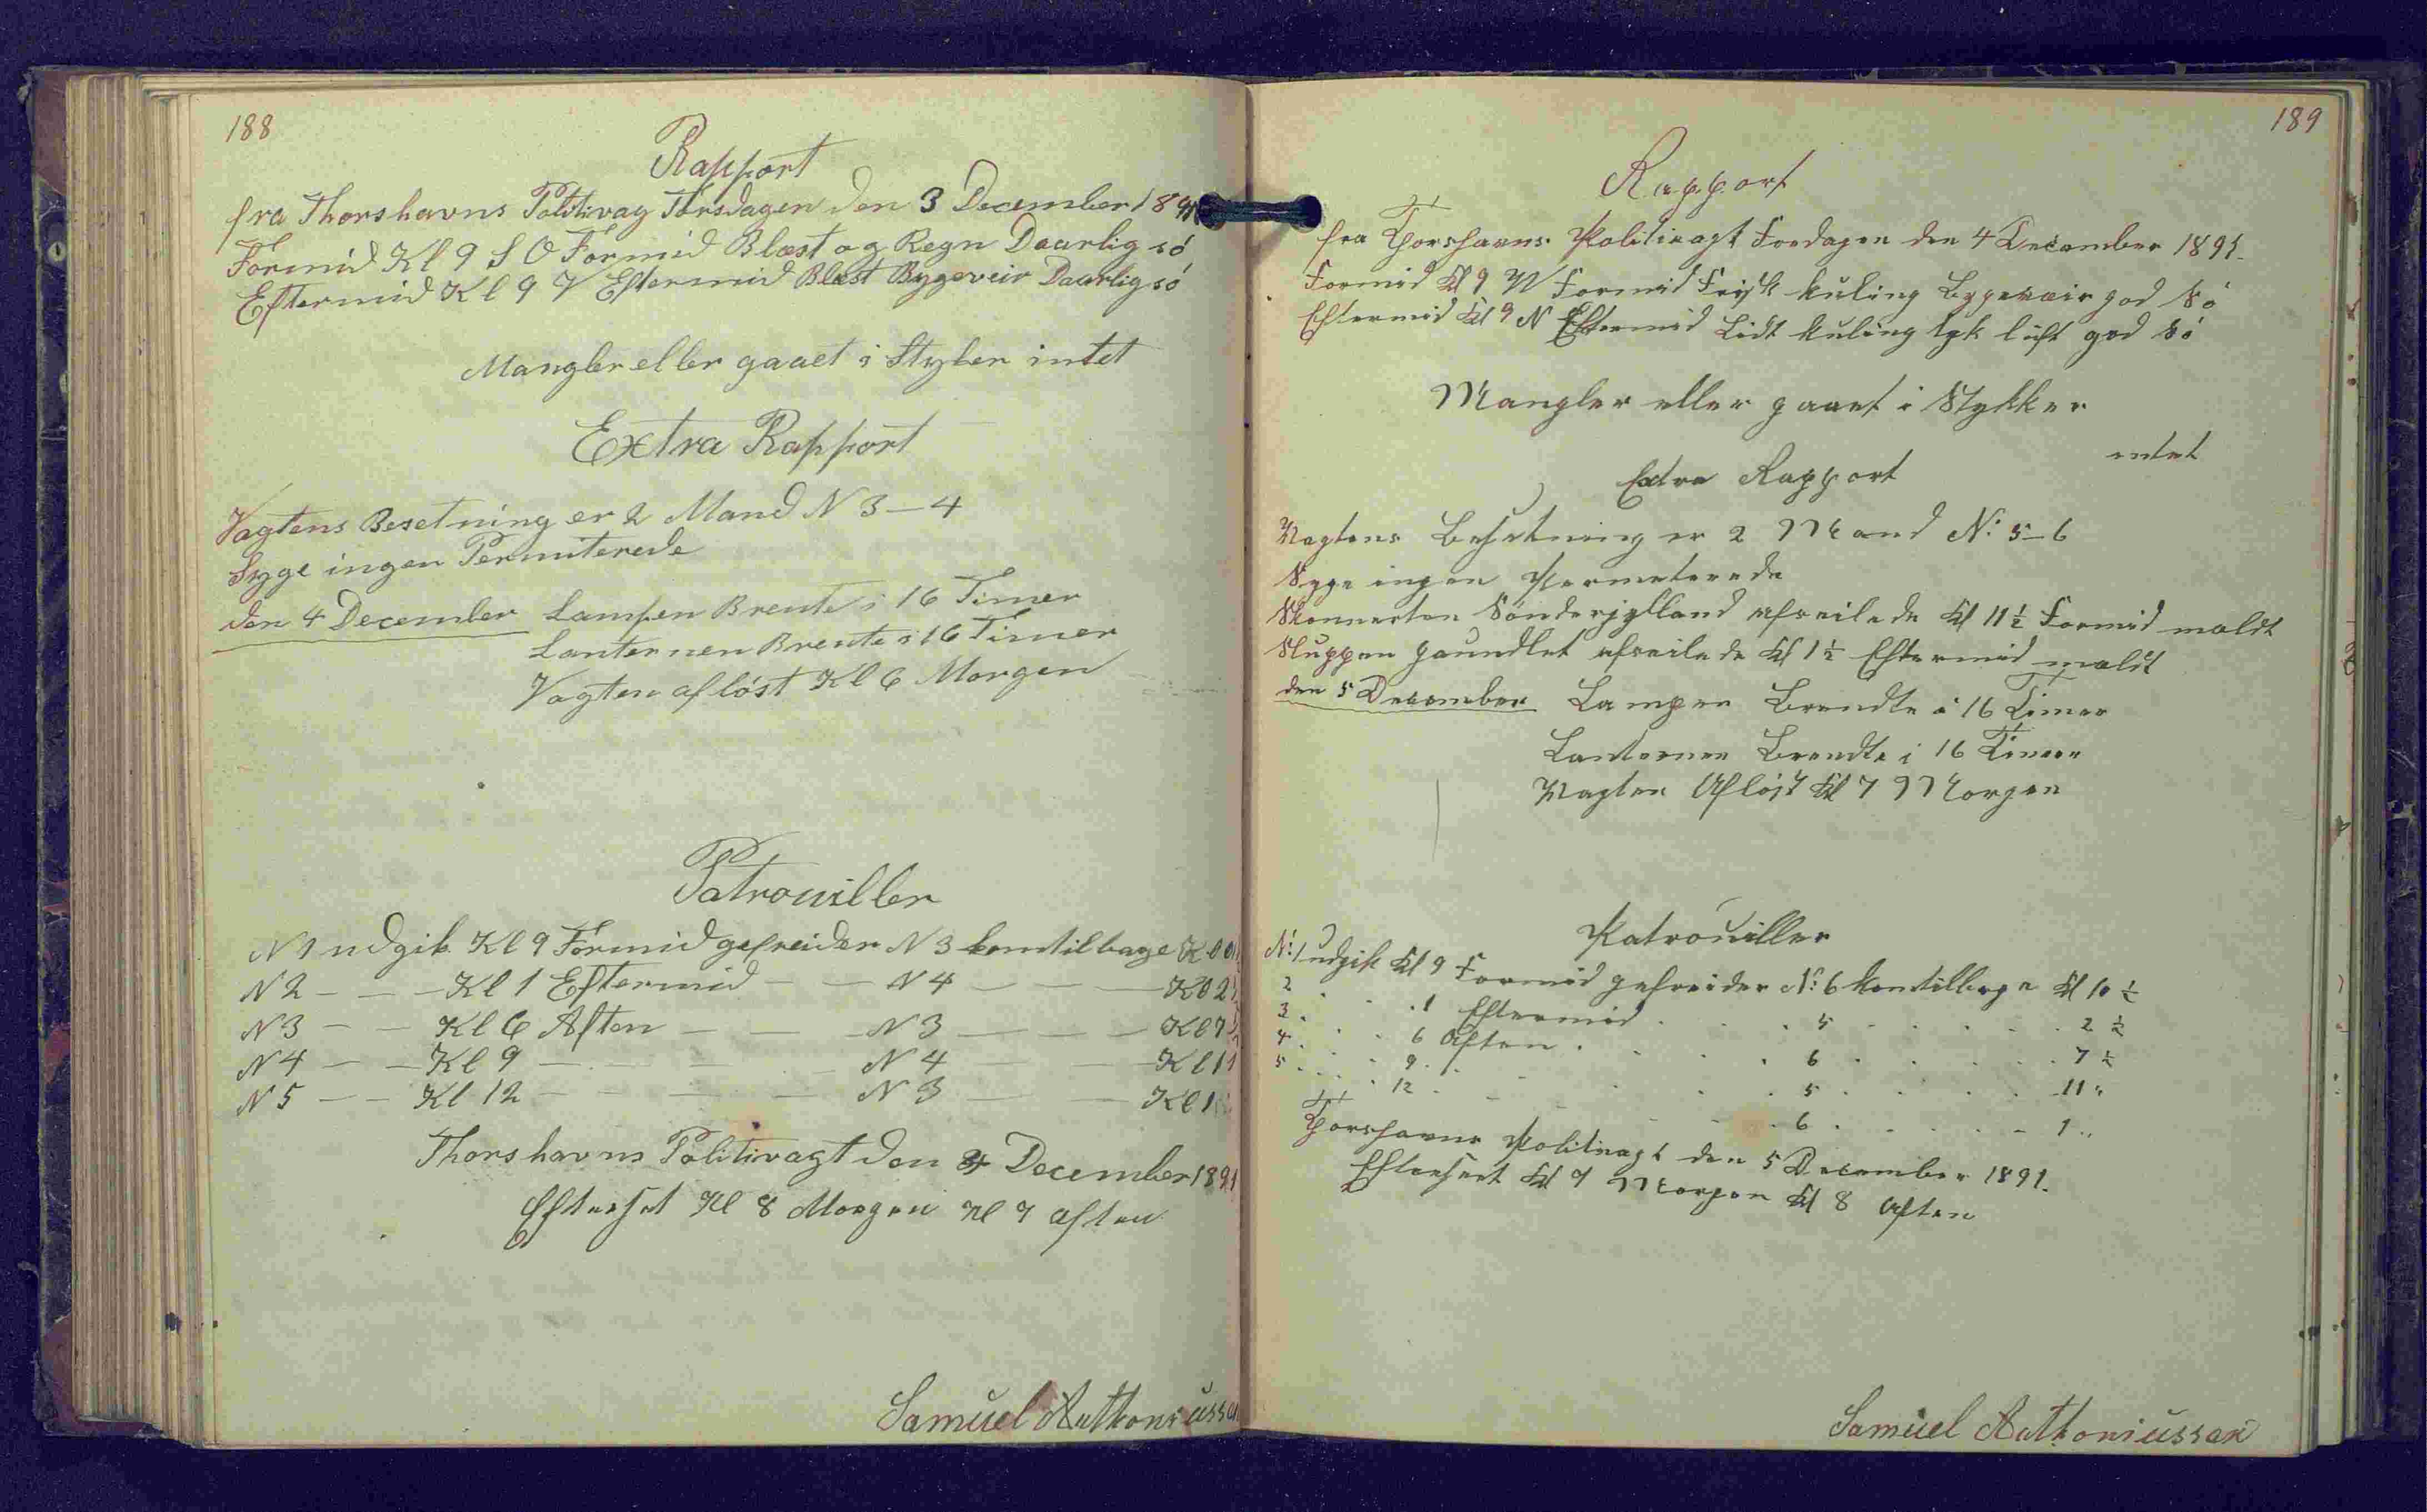 188
Rapport
fra Thorshavns Politivag Torsdagen den 3 December 1891
Formid Kl 9 S O Formid Blæst og Regn Daarlig só
Eftermid Kl 9 V Eftermid Blæst Bygeveir Daarlig só
Mangler eller gaaet i Styker intet
Extra Rapport
Vagtens Besetning er 2 Mand N 3-4
Syge ingen Permiterede
den 4 December Lampen Brente i 16 Timer
Lanternen Brente i 16 Timer
Vagten afløst Kl 6 Morgen
Patrouiller
N 1 udgik Kl 9 Formid gefreider N 3 komtilbage Kl
N 2 - - - Kl 1 Eftermid - - N 4 - - - Kl 2
N 3 - - Kl 6 Aften - - N 3 - - - Kl 7
N 4 - - Kl 9 - - - N 4 - - Kl 11
N 5 - - Kl 12 - - - N 3 - - Kl 1
Thorshavns Politivagt den 4 December 1891
Efterset Kl 8 Morgen Kl 7 aften
Samuel Anthoniussen
189
Rapport
fra Thorshavns Politivagt Fredagen den 4 December 1891.
Formid Kl 9 N Formid Frisk kuling Bygeveir god Só
Eftermid Kl 9 N Eftermid Lidt kuling tyk luft god Só
Mangler eller gaaet i Stykker
intet
Extra Rapport
Vagtens Besetning er 2 Mand N: 5-6
Syge ingen Permeterede
Skonnerten Sønderjylland afseilede Kl 11½ Formid maldt
Sluppen Gauntlet afseilede Kl 1½ Eftermid maldt
den 5 December Lampen Brendte i 16 Timer
Lanternen Brendte i 16 Timer
Vagten Afløst Kl 7 Morgen
Patrouiller
N: 1 udgik Kl 9 Formid gefreider N: 6 komtilbage Kl 10 ½
2 . . . 1 Eftermid . . . 5 . . . . 2 ½
3 . . . 6 Aften . . . 6 . . . . 7 ½
4 . . . 9 . . . . 5 . . . . 11 "
5 . . . 12 . . . . 6 . . . . 1 "
Thorshavns Politivagt den 5 December 1891.
Efterseet Kl 7 Morgen Kl 8 Aften
Samuel Anthoniussen